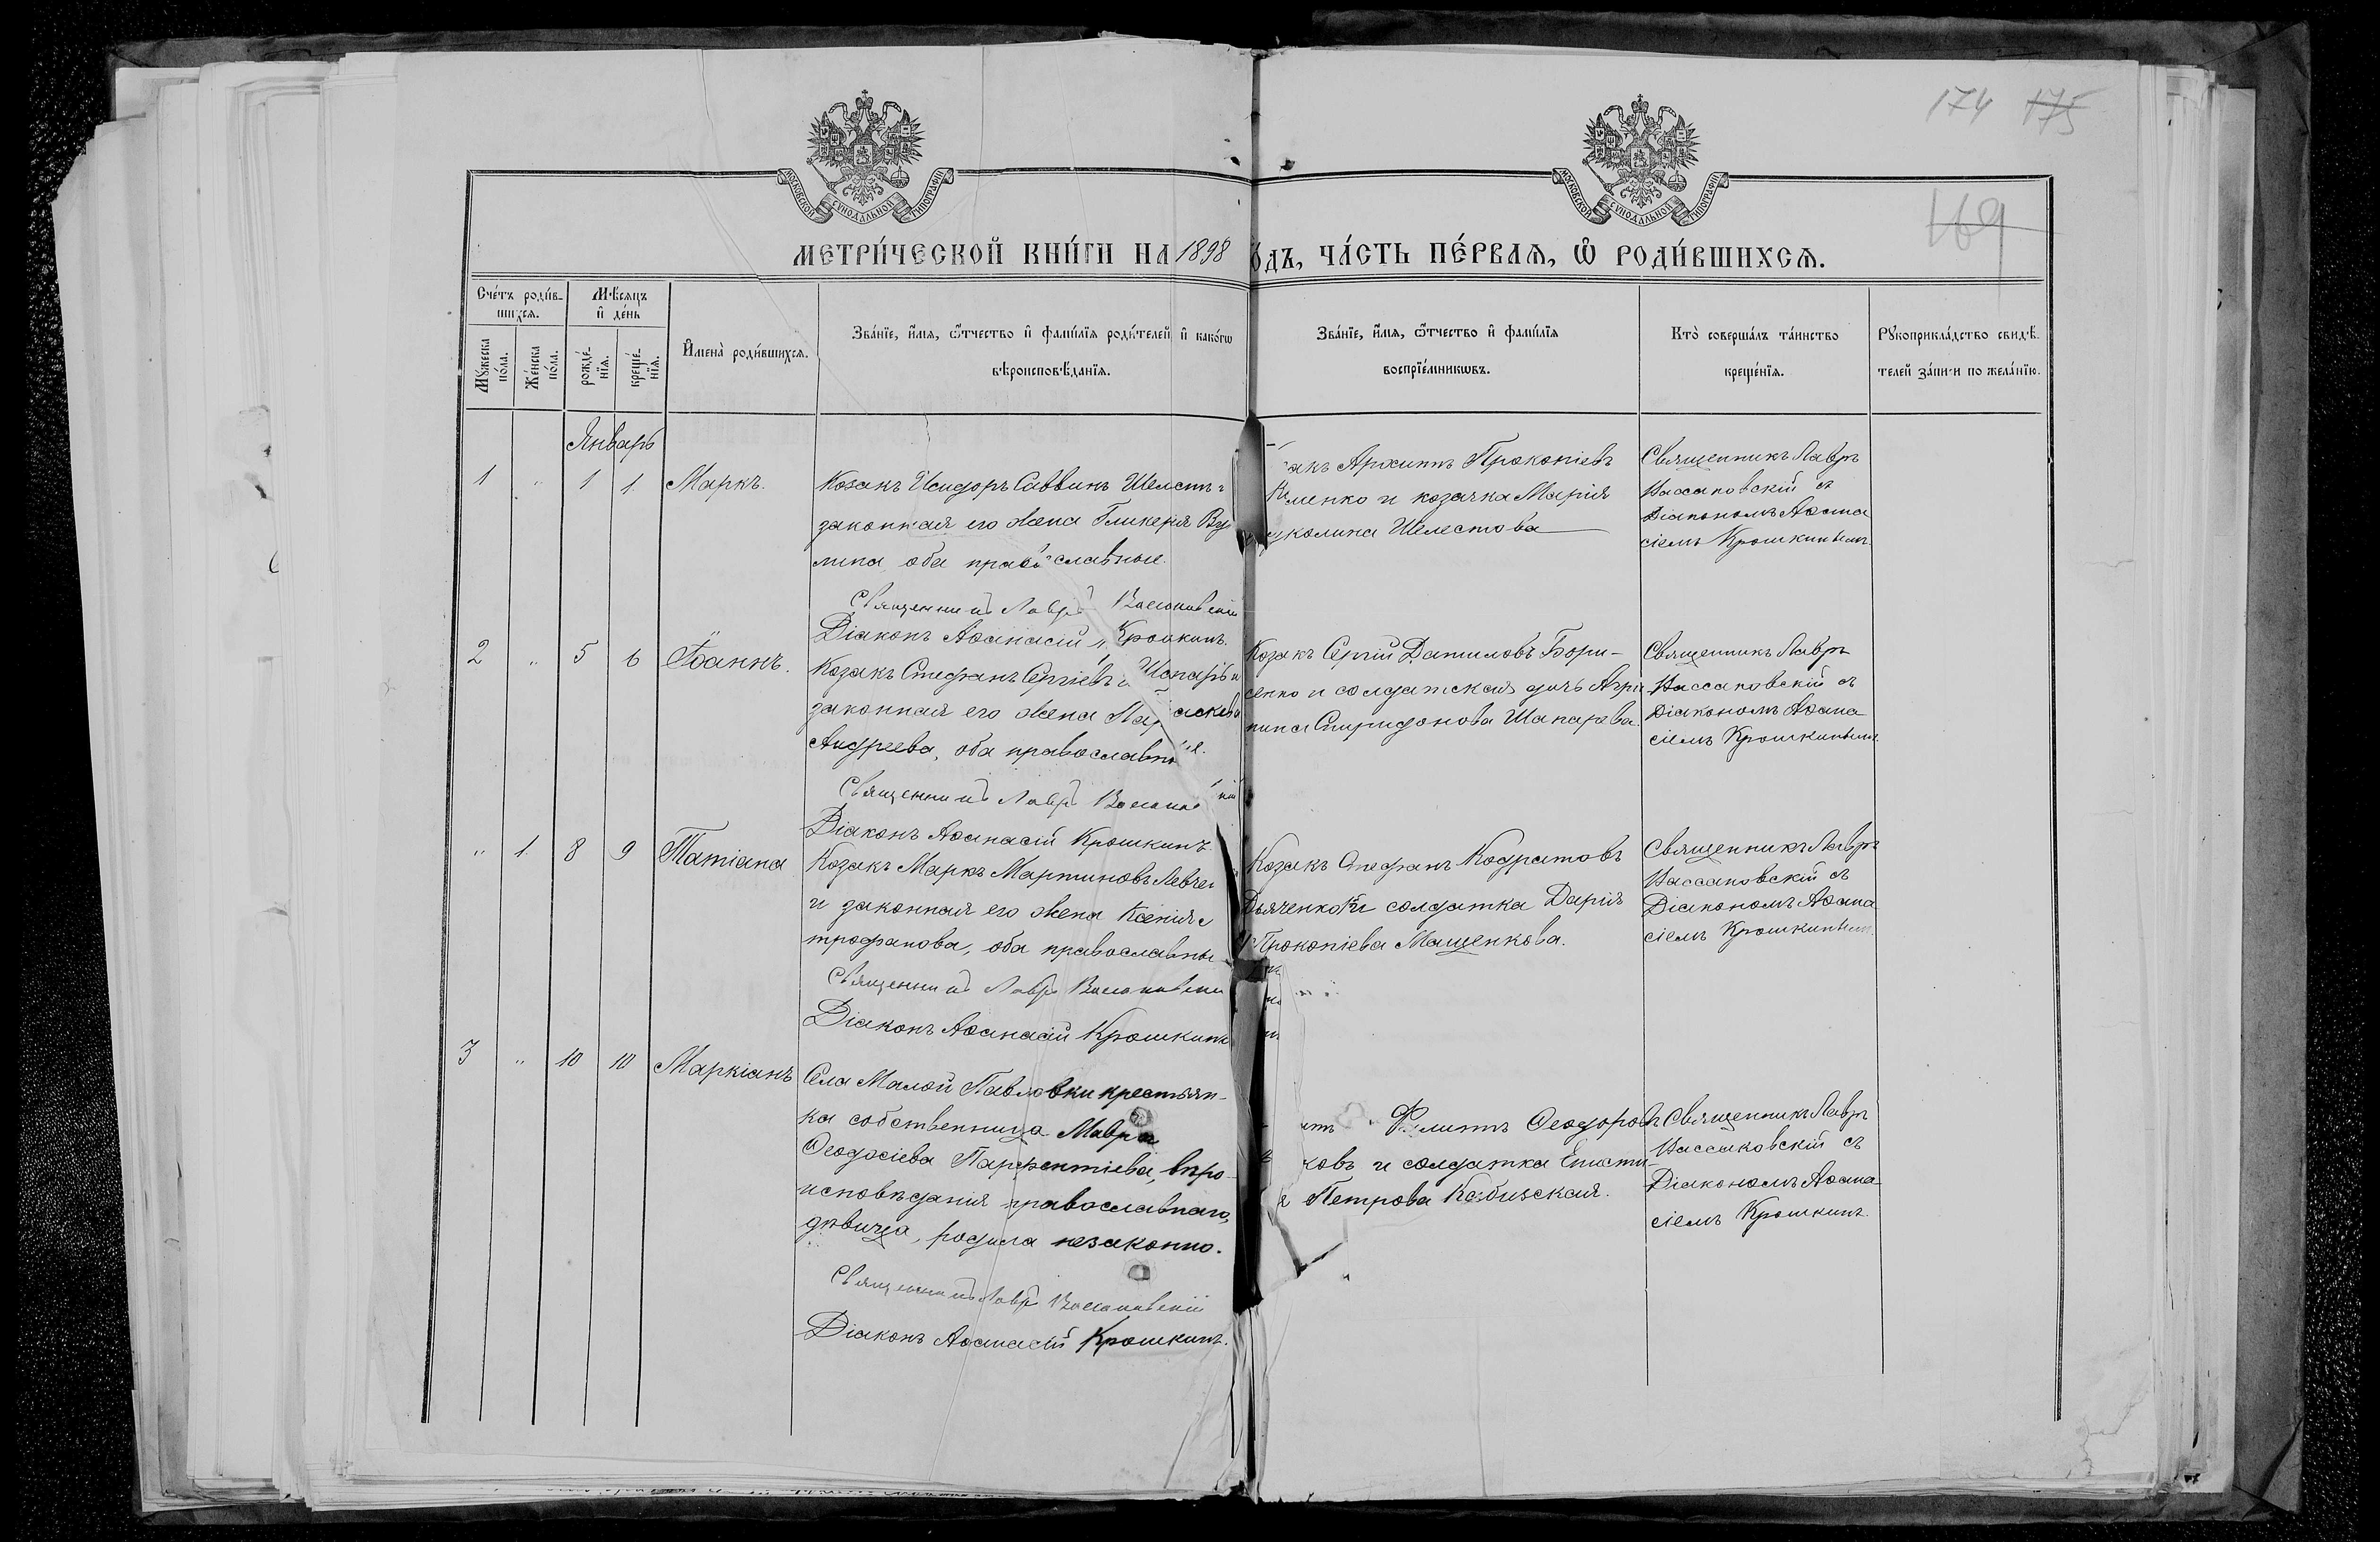 174 175
169
МОСКОВСКОЙ СУНОДАЛЬНОЙ ТИПОГРАФІИ
МОСКОВСКОЙ СУНОДАЛЬНОЙ ТИПОГРАФІИ
МЕТРИ́ЧЕСКОЙ КНИ́ГИ НА 1898 ОДЪ, ЧА́СТЬ ПЕ́РВАѦ, Ѡ҆ РОДИ́ВШИХСѦ.
Сче́тъ роди́в-
шихсѧ.
Мꙋ́жеска по́ла.
Же́нска по́ла.
Мѣ́сѧцъ и҆ де́нь
рожде́-нїѧ.
креще́-нїѧ.
И҆мена̀ роди́вшихсѧ.
Зва́нїе, и҆́мѧ, ѻ҆́тчество и҆ фами́лїѧ роди́телей и҆ како́гѡ
вѣроисповѣ́данїѧ.
Зва́нїе, и҆́мѧ, ѻ҆́тчество и҆ фами́лїѧ
воспрїе́мникѡвъ.
Кто̀ соверша́лъ та́инство
креще́нїѧ.
Рꙋкоприкла́дство свидѣ́-
телей за́пи-и по жела́нїю.
Январь
1 " 1 1 Маркъ.
Козакъ Исидоръ Саввинъ Шелест
законная его жена Гликерія
лина, оба православные.
Священникъ Лавръ Вассаковскій
Діаконъ Аѳанасій Крошкинъ.
акъ Архиппъ Прокопіевъ
менко и козачка Марія
уколина Шелестова
Священникъ Лавръ
Вассаковскій съ
Діакономъ Аѳана
сіемъ Крошкинымъ.
2 " 5 6 Іоаннъ.
Козакъ Стефанъ Сергіевъ Шапаръ и
законная его жена Параскева
Андреева, оба православные.
Священникъ Лавръ Вассаковскій
Діаконъ Аѳанасій Крошкинъ.
Козакъ Сергій Даниловъ Бори-
сенко и солдатская дочь Агри
пина Спиридонова Шапарева.
Священникъ Лавръ
Вассаковскій съ
Діакономъ Аѳана
сіемъ Крошкинымъ.
" 1 8 9 Татіана
Козакъ Маркъ Мартиновъ Левче
и законная его жена Ксенія
трофанова, оба православные
Священникъ Лавръ Вассаковскій
Діаконъ Аѳанасій Крошкинъ
Козакъ Стефанъ Кодратовъ
Дьяченко и солдатка Дарія
Прокопіева Мащенкова.
Священникъ Лавръ
Вассаковскій съ
Діакономъ Аѳана
сіемъ Крошкинымъ.
3 " 10 10 Маркіанъ
Села Малой Павловки крестьян-
ка собственница Мавра
Ѳеодосіева Парфентіева, вѣро-
исповѣданія православнаго,
дѣвица, родила незаконно.
Священникъ Лавръ Вассаковскій
Діаконъ Аѳанасій Крошкинъ.
Филиппъ Ѳеодоровъ
ковъ и солдатка Еписти
я Петрова Кобизская.
Священникъ Лавръ
Вассаковскій съ
Діакономъ Аѳана-
сіемъ Крошкинъ.